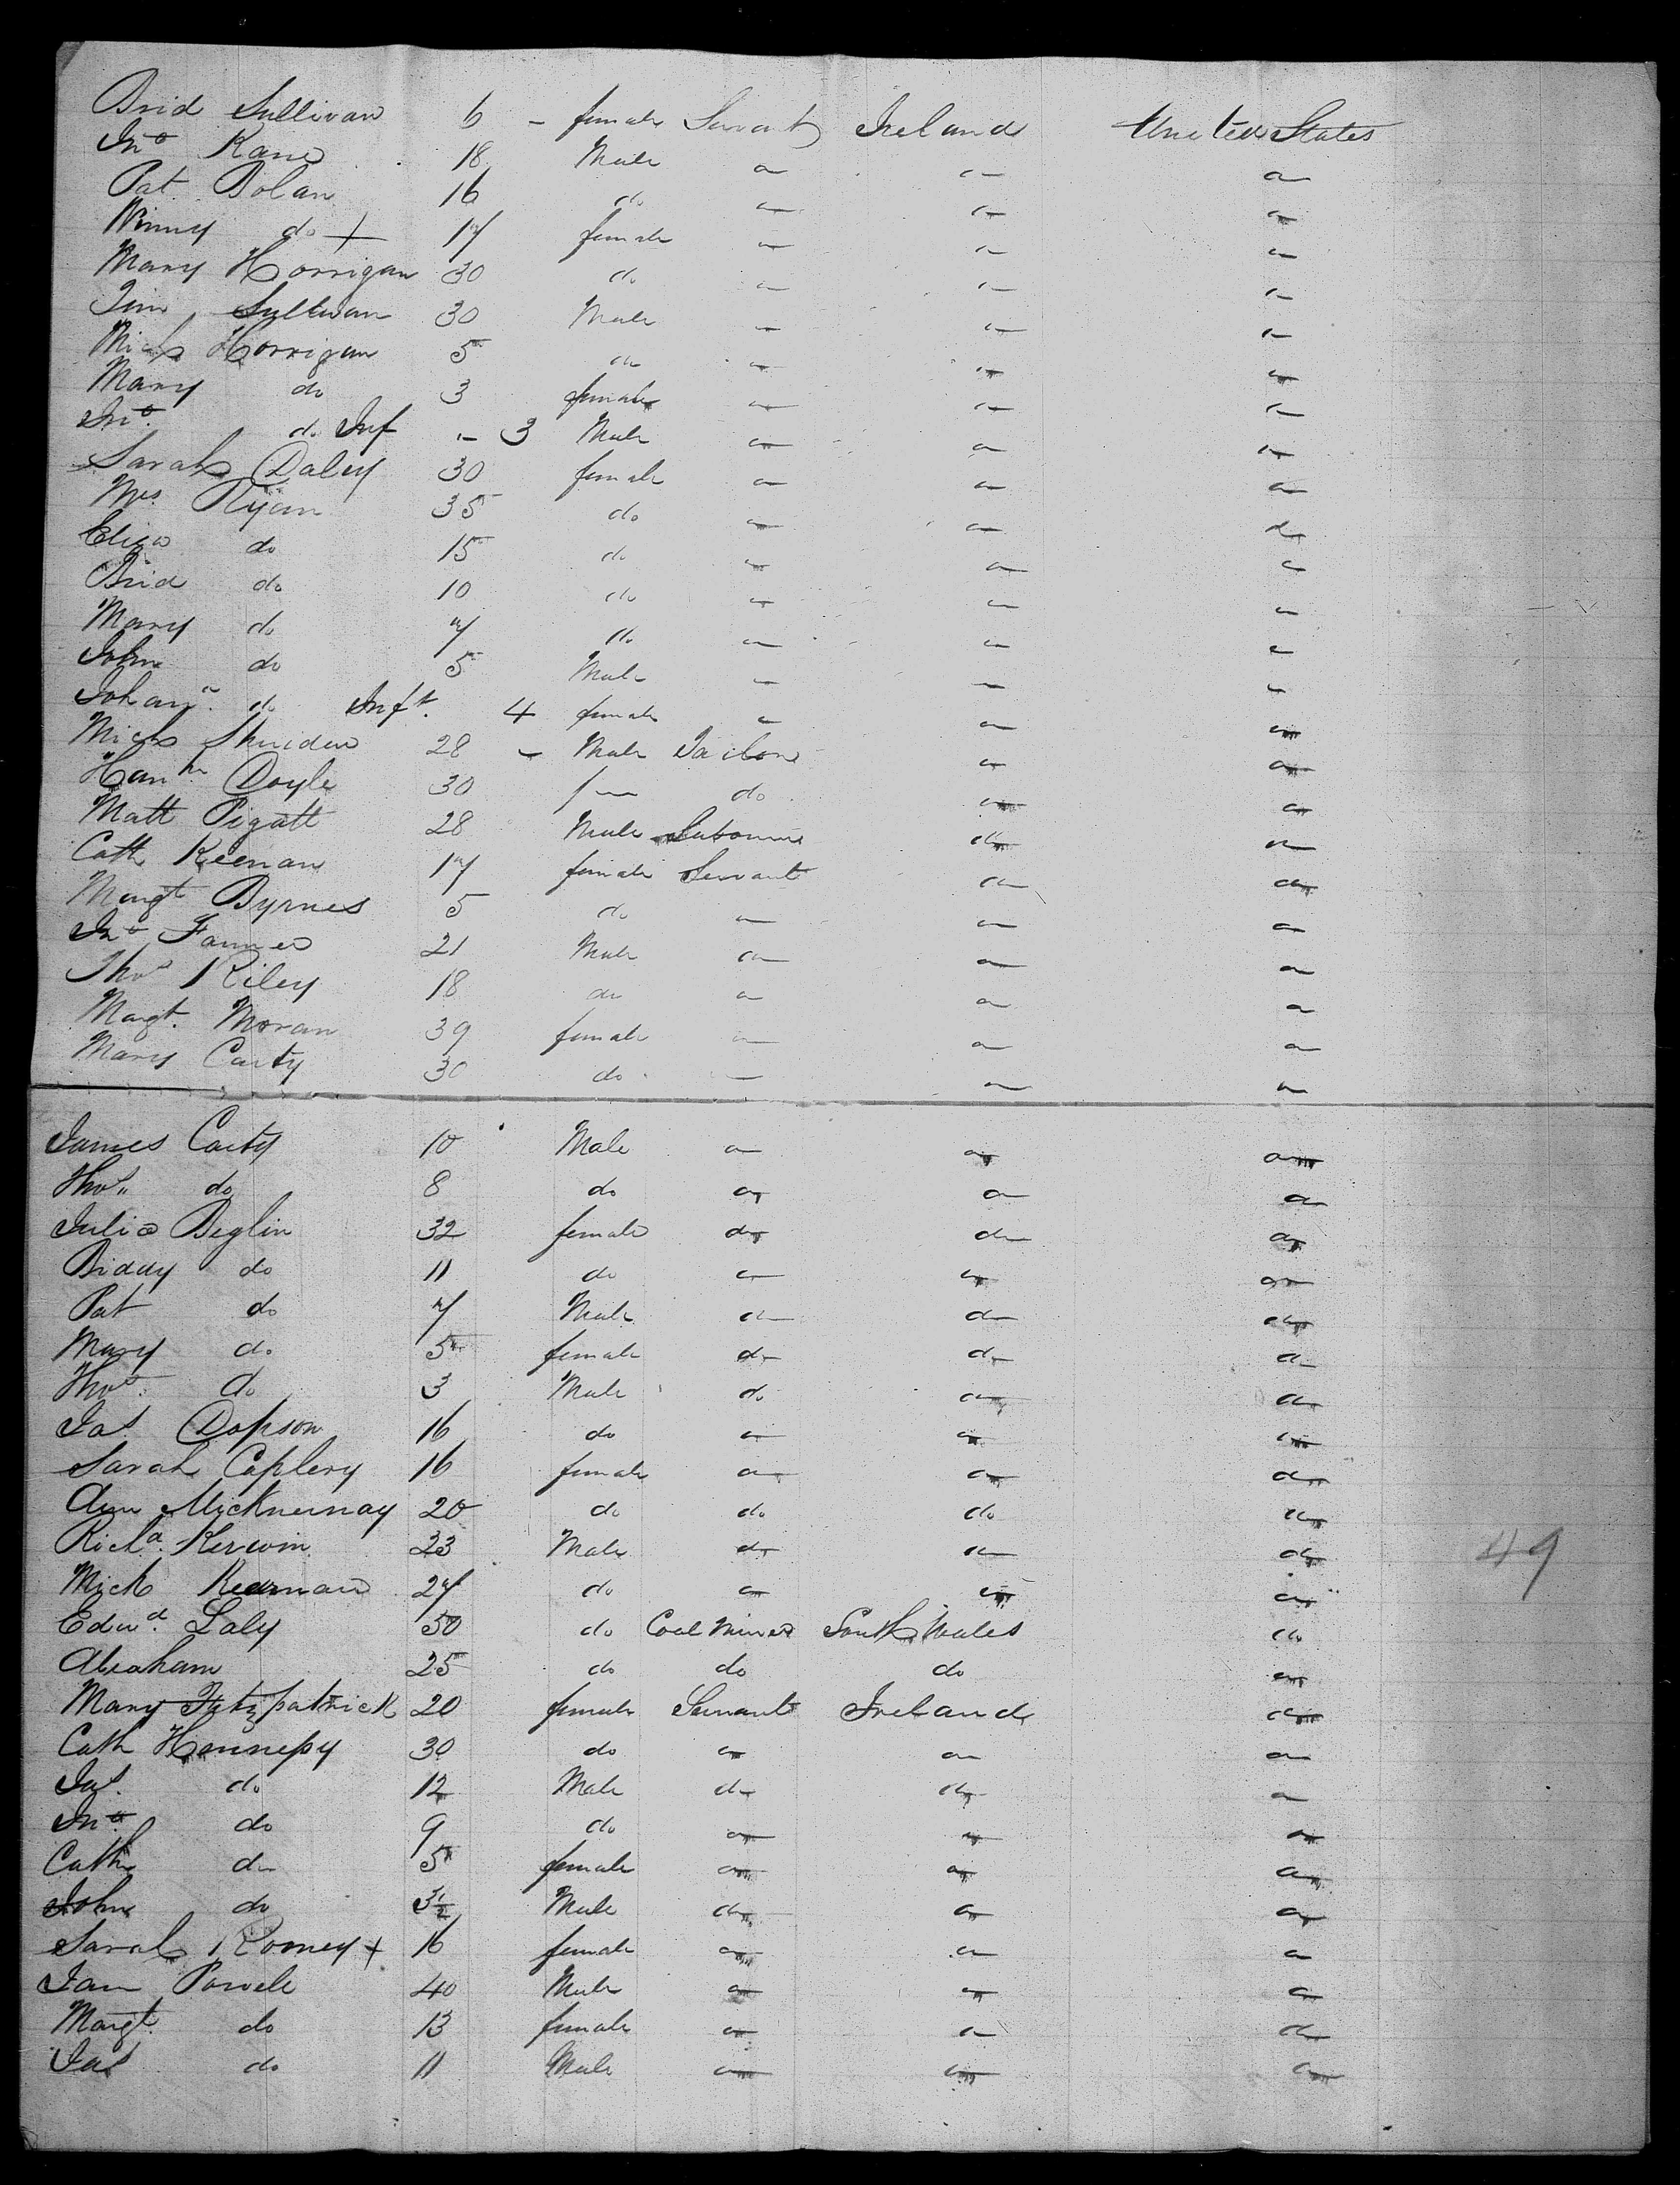 Brid Sullivan 6 - female Servant Ireland United States
Jno Kane 18 Male do do do
Pat Dolan 16 do do do do
Winny do + 17 female do do do
Mary Horrigan 30 do do do do
Tim Sullivan 30 Male do do do
Mich Horrigan 5 do do do do
Mary do 3 female do do do
Jno. do Inf - 3 Male do do do
Sarah Daley 30 female do do do
Mrs. Ryan 35 do do do do
Eliza do 15 do do do do
Brid do 10 do do do do
Mary do 7 do do do do
John do 5 Male do do do
Johana. do Inft. 4 female do do do
Mich Sheridan 28 - Male Tailor do do
Hanh Doyle 30 fem do do do
Matt Pigatt 28 Male Labourer do do
Cath Keenan 17 female Servant do do
Margt Byrnes 5 do do do do
Jno 21 Male do do do
Thos Riley 18 do do do do
Margt. Moran 39 female do do do
Mary Carty 30 do do do do
James Carty 10 Male do do do
Thos do 8 do do do do
Julia Beglin 32 female do do do
Biddy do 11 do do do do
Pat do 7 Male do do do
Mary do 5 female do do do
Thos. do 3 Male do do do
Jas. Dopson 16 do do do do
Sarah Caplery 16 female do do do
Ann McKnernay 20 do do do do
Richd. Kerwin 23 Male do do do
Mick 27 do do do do
Edwd. Laly 50 do Coal Miner South Wales do
Abraham 25 do do do do
Mary Fitzpatrick 20 female Servant Ireland do
Cath Hennesy 30 do do do do
Jas. do 12 Male do do do
Jno. do 9 do do do do
Cath do 5 female do do do
John do 3½ Male do do do
Sarah Romey + 16 female do do do
Jam Powell 40 Male do do do
Margt. do 13 female do do do
Jas do 11 Male do do do
49